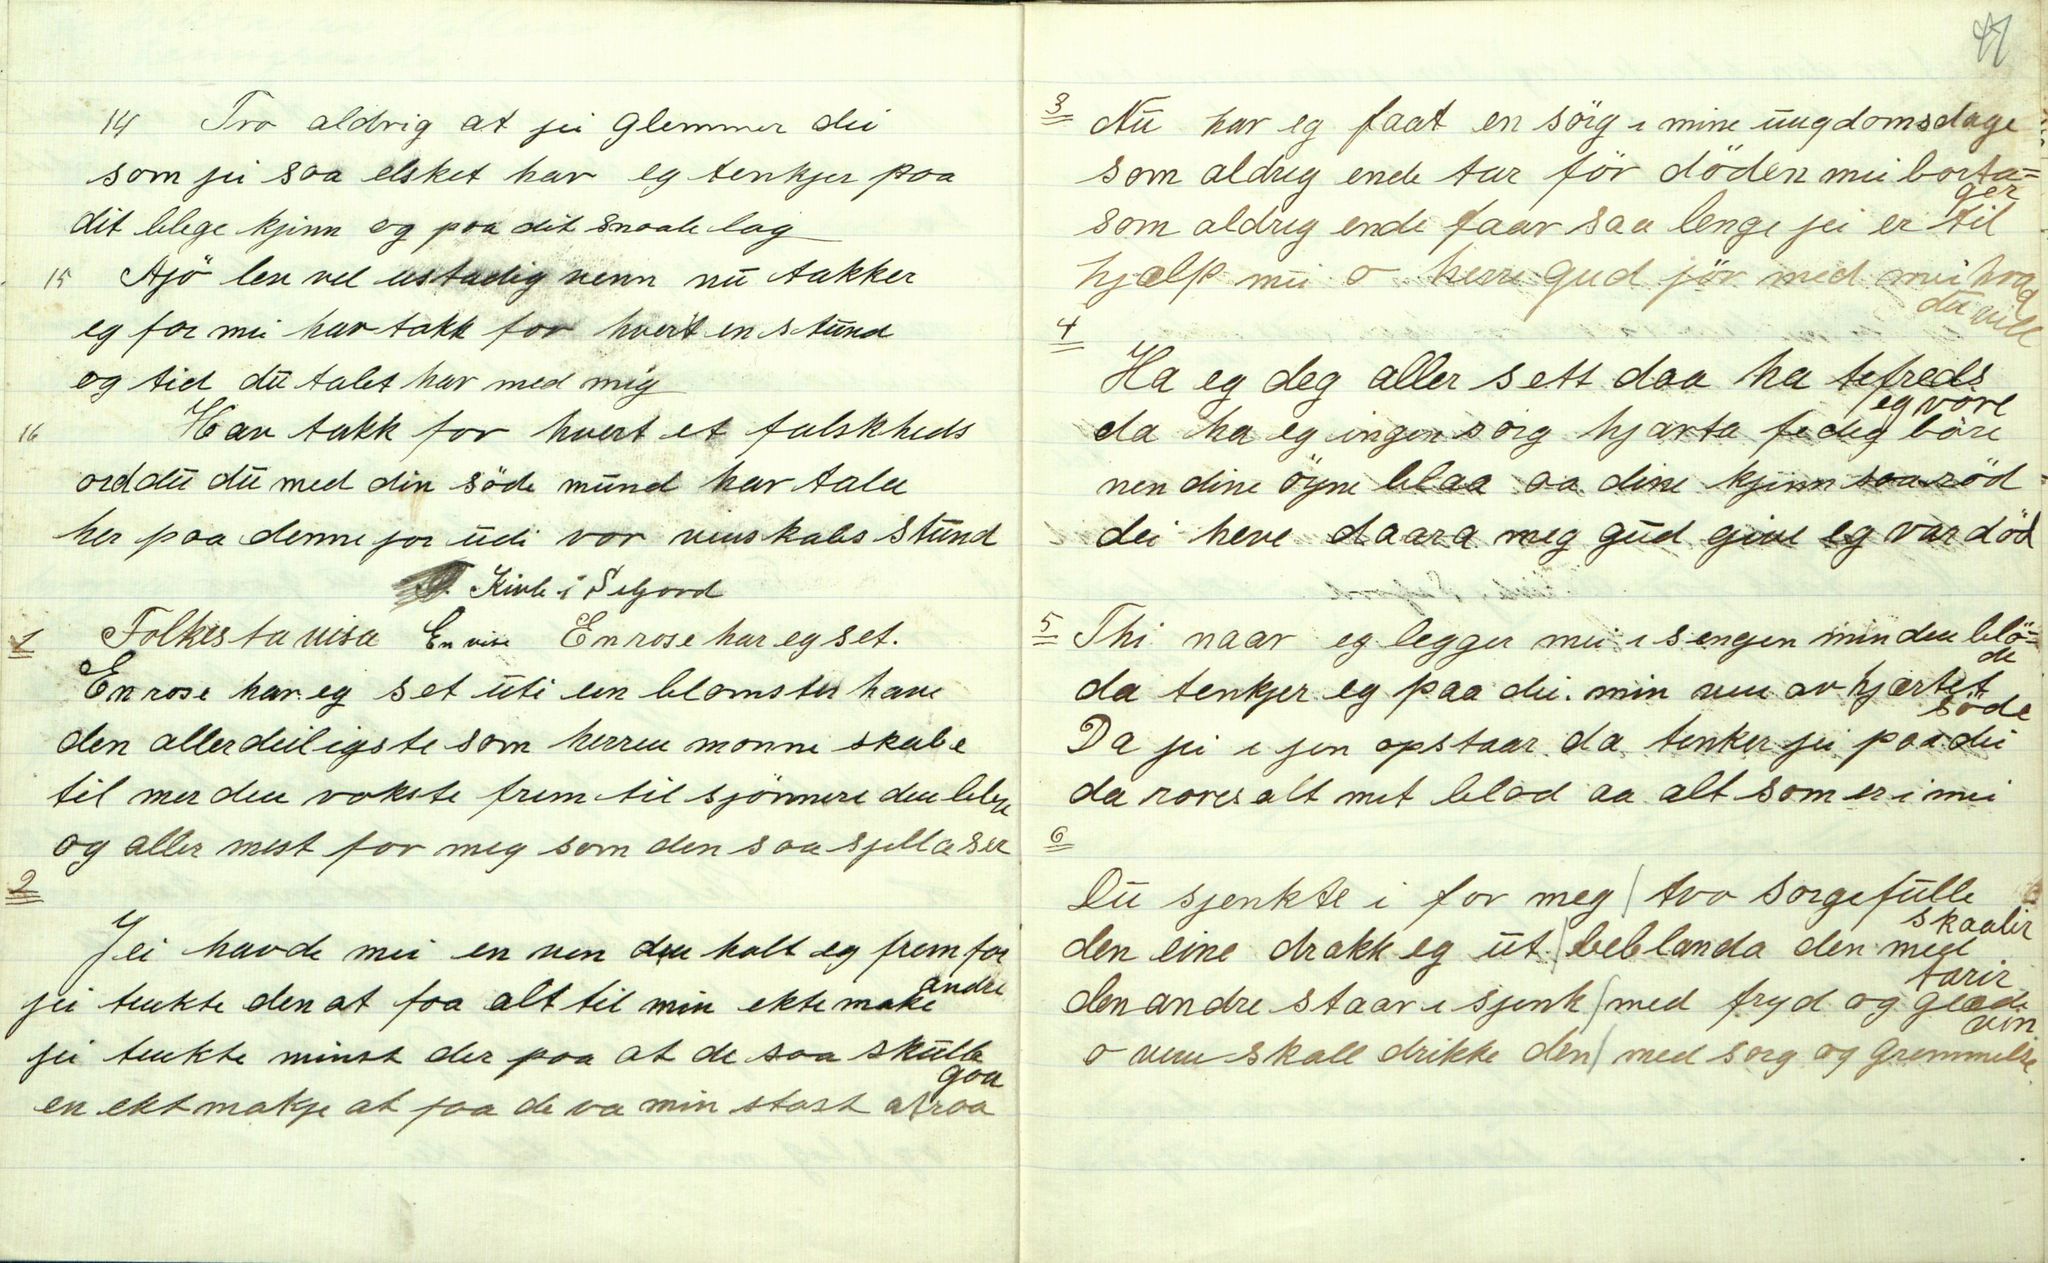 14 Tro aldrig at jei glemmer dei
som jei saa elsket har eg tenkjer paa
dit blege kjinn og paa dit snaale lag
15 Ajö lev vel ustadig venn nū takker
eg for mei hav takk for hvert en stūnd
og tid dū talet har med mig
16 Hav takk for hvert et falskheds
ord dū dū med din söde mūnd har tala
her paa denne jor ūdi vor venskabs stūnd
Kivle i Seljord
1 Folkesta visa En vise En rose har eg set.
En rose har eg set ūti een blomster have
den allerdeiligste som herren monne skabe
til mer den vokste frem til sjönnere den blei
og aller mest for meg som den saa sjella ser
2
Jei havde mei en ven den holt eg frem for
andre
jei tenkte den at faa alt til min ekte make
jei tenkte minst der paa at de saa skūlle
gaa
en ekt makje at faa de va min stost atraa
41
3 Nū har eg faat en sörg i mine ūngdomsdage
som aldrig ende tar för döden mei borta=
ger
som aldrig ende faar saa lenge jei er til
hjælp mei o herre gud jör med mei hvad
dū vill
4
Ha eg deg aller sett daa ha tefreds
eg vore
da ha eg ingen sorg hjarta fe deg böre
men dine öyne blaa aa dine kjinn saa röd
dei heve daara meg gūd give eg var död
5 Thi naar eg legger mei i sengen min den blö=
de
da tenkjer eg paa dei. min ven av hjærtet
söde
Da jei i jen opstaar da tenker jei paa dei
da röres alt met blod aa alt som er i mei
6
Dū sjenkte i for meg / tvo sorgefūlle
skaalir
den eine drakk eg ūt / beblanda den med
tarir
den andre staar i sjenk / med fryd og glæde
vin
o ven skall drikke den / med sorg og gremmelse